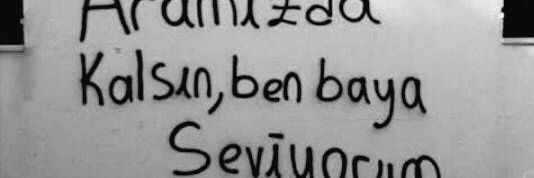 Aramızda
Kalsın, ben baya
Seviyorum